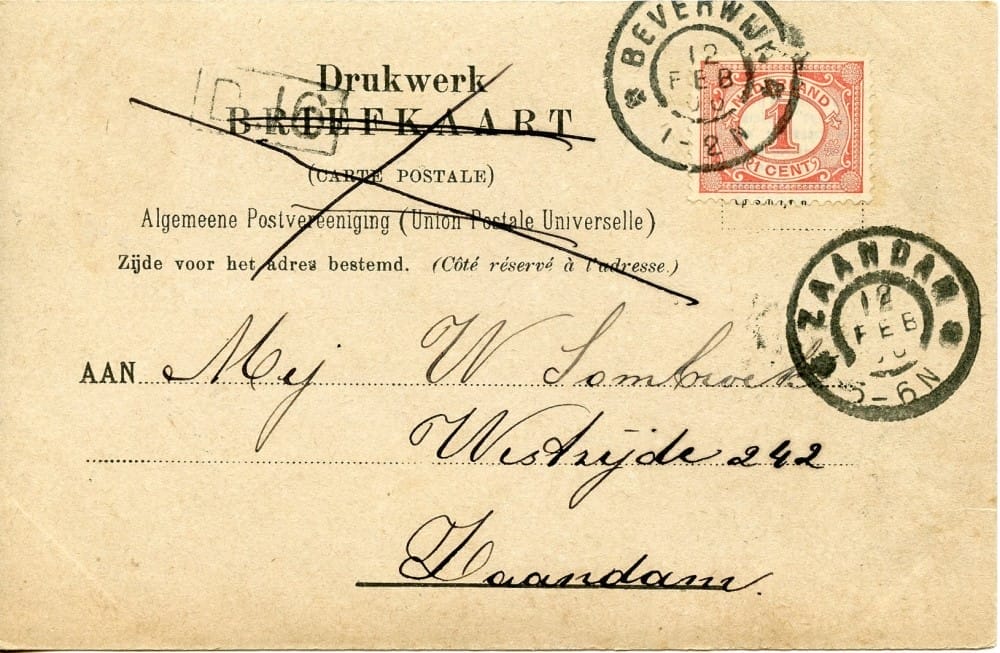 BEVERWIJK
12
FEB
1-2N
Drukwerk
BRIEFKAART
(CARTE POSTALE)
Algemeene Postvereeniging (Union Postale Universelle)
Zijde voor het adres bestemd. (Côté réservé à l'adresse.)
NEDERLAND
1
1 CENT
ZAANDAM
12
FEB
5-6N
AAN Mej W
Westzijde 242
Zaandam.